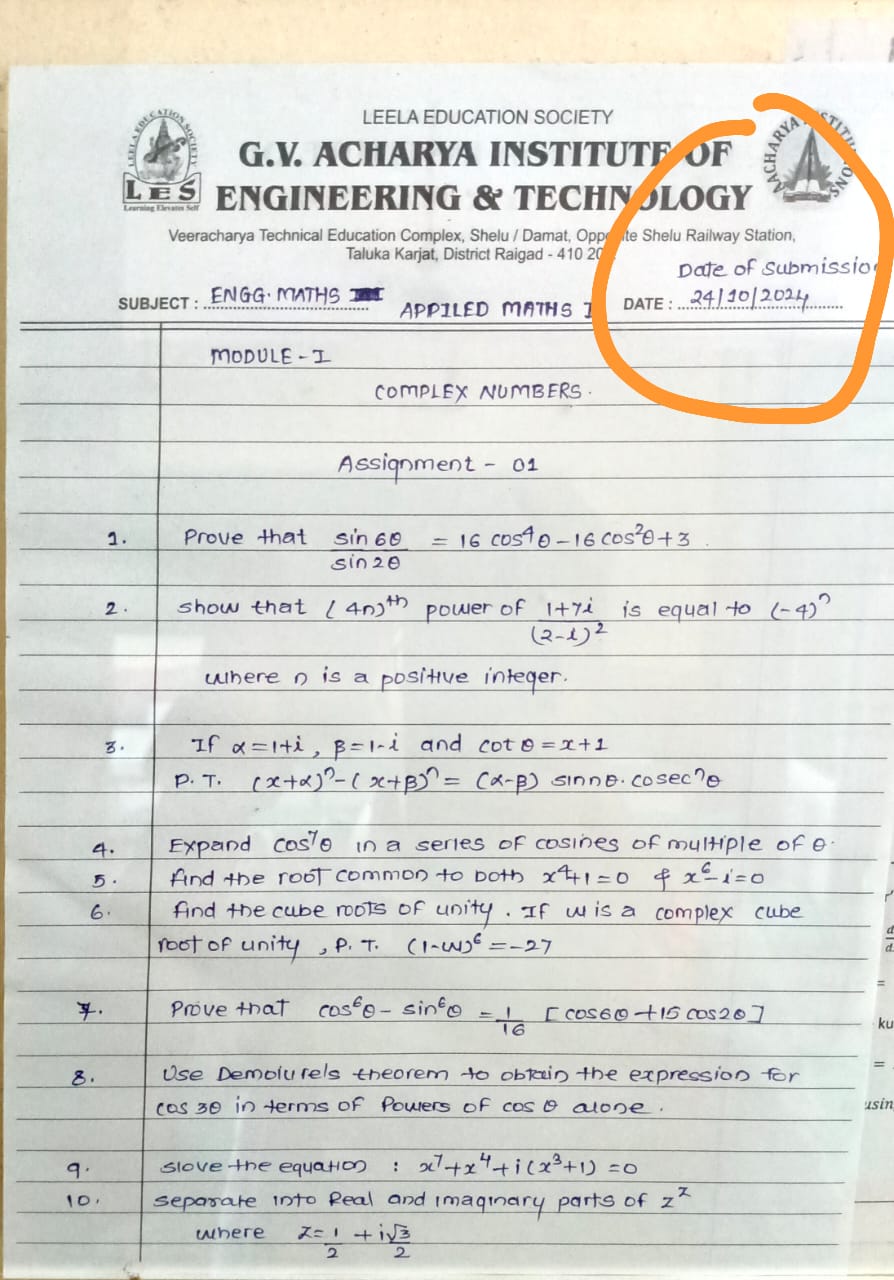 LEELA EDUCATION SOCIETY
G.V. ACHARYA INSTITUTE OF
ENGINEERING & TECHNOLOGY
LEELA EDUCATION SOCIETY
LES
Learning Elevates Self
Veeracharya Technical Education Complex, Shelu / Damat, Opposite Shelu Railway Station,
Taluka Karjat, District Raigad - 410 20
Date of submission
SUBJECT : ENGG. MATHS
APPILED MATHS I
DATE : 24/10/2024
MODULE - I
COMPLEX NUMBERS.
Assignment - 01
1. Prove that sin 6θ / sin 2θ = 16 cos⁴θ – 16 cos²θ + 3
2. show that (4n)th power of 1+7i / (2-i)² is equal to (-4)ⁿ
where n is a positive integer.
3. If α = 1+i, β = 1-i and cot θ = x+1
P.T. (x+α)ⁿ - (x+β)ⁿ = (α-β) sin nθ. cosecⁿθ
4. Expand cos⁷θ in a series of cosines of multiple of θ.
5. find the root common to both x⁴+1=0 & x⁶-i=0
6. find the cube roots of unity. If w is a complex cube
root of unity, P.T. (1-w)⁶ = -27
7. Prove that cos⁶θ - sin⁶θ = 1/16 [cos6θ + 15 cos2θ]
8. Use Demoivrels theorem to obtain the expression for
cos 3θ in terms of Powers of cos θ alone.
9. slove the equation : x⁷+x⁴+i(x³+1) = 0
10. separate into Real and imaginary parts of z^z
where z = 1/2 + i√3/2
ku
=
usin